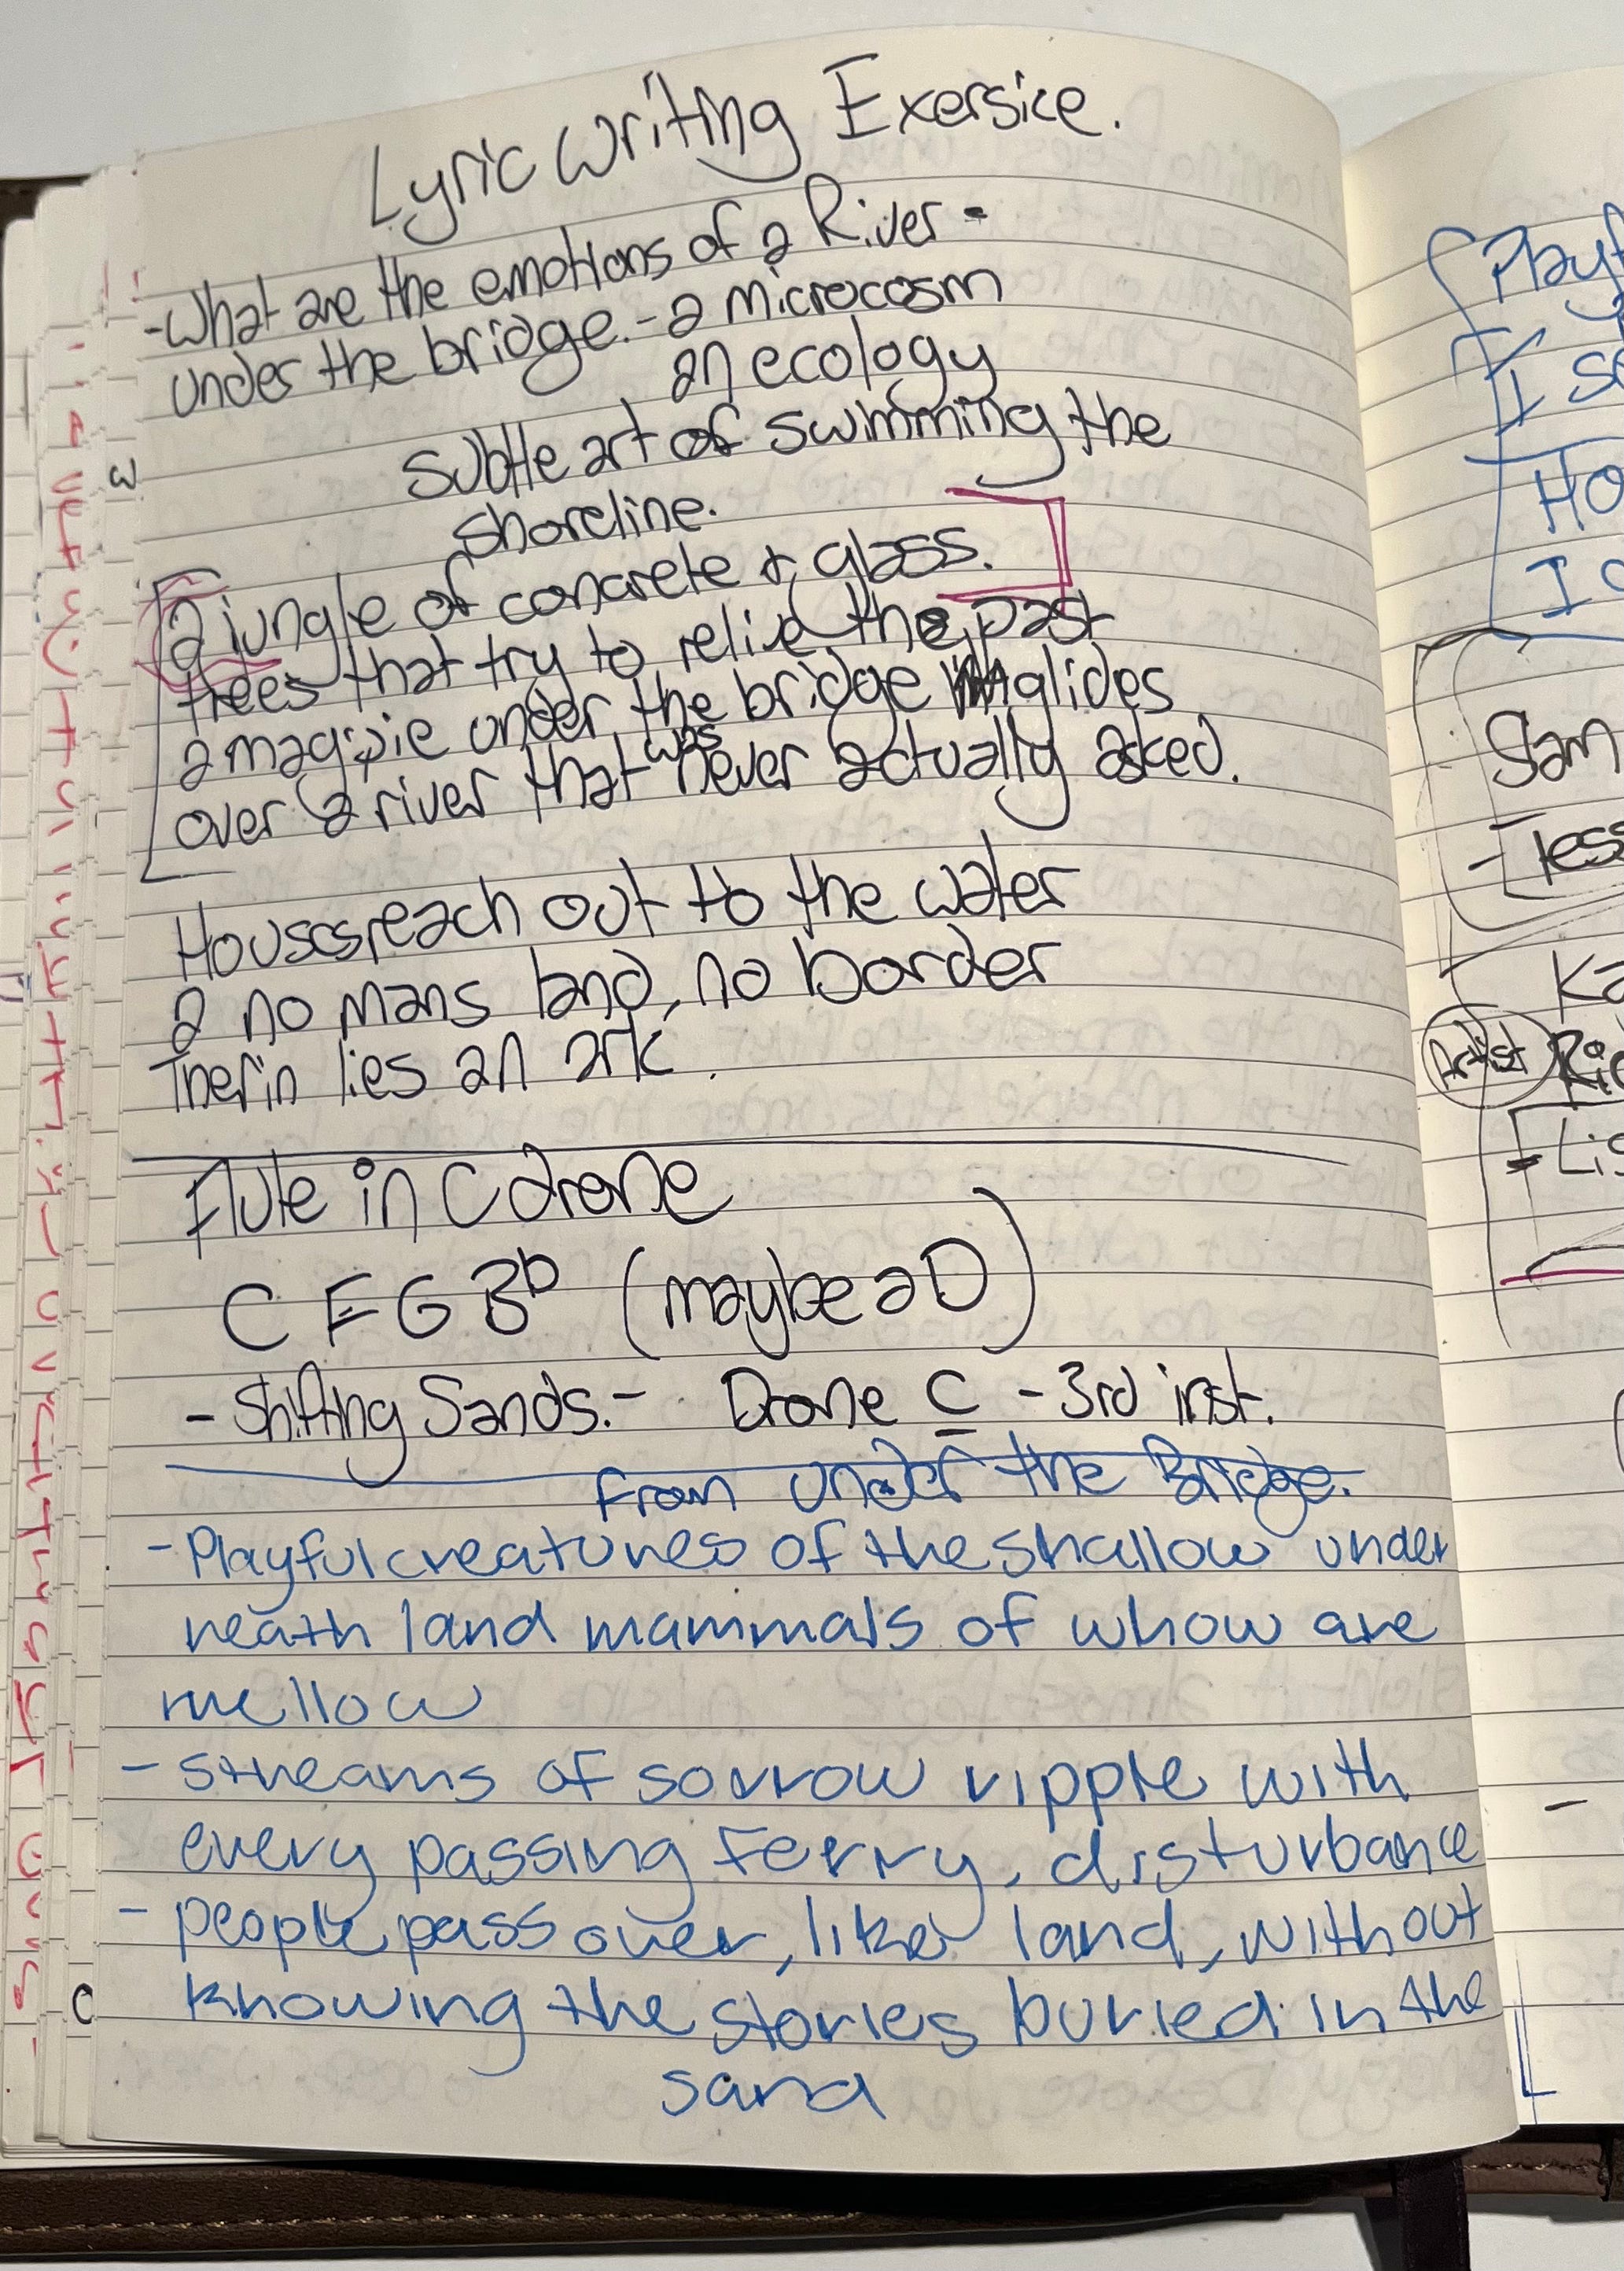 Lyric Writing Exersice.
-What are the emotions of a River -
under the bridge. - a microcosm
an ecology
subtle art of swimming the
shoreline.
a jungle of concrete & glass.
trees that try to relive the past
a magpie under the bridge glides
over a river that was never actually asked.
Houses reach out to the water
a no mans land, no border
Therin lies an ark.
Flute in C drone
C F G Bb (maybe a D)
- Shifting Sands. - Drone C - 3rd inst.
From under the Bridge.
- Playful creatures of the shallow under
neath land mammals of whow are
mellow
- streams of sorrow ripple with
every passing Ferry, disturbance
- people pass over, like land, without
knowing the stories buried in the
sand
Playf
I s
Ho
I
Sam
- less
Ka
Artist
Lis